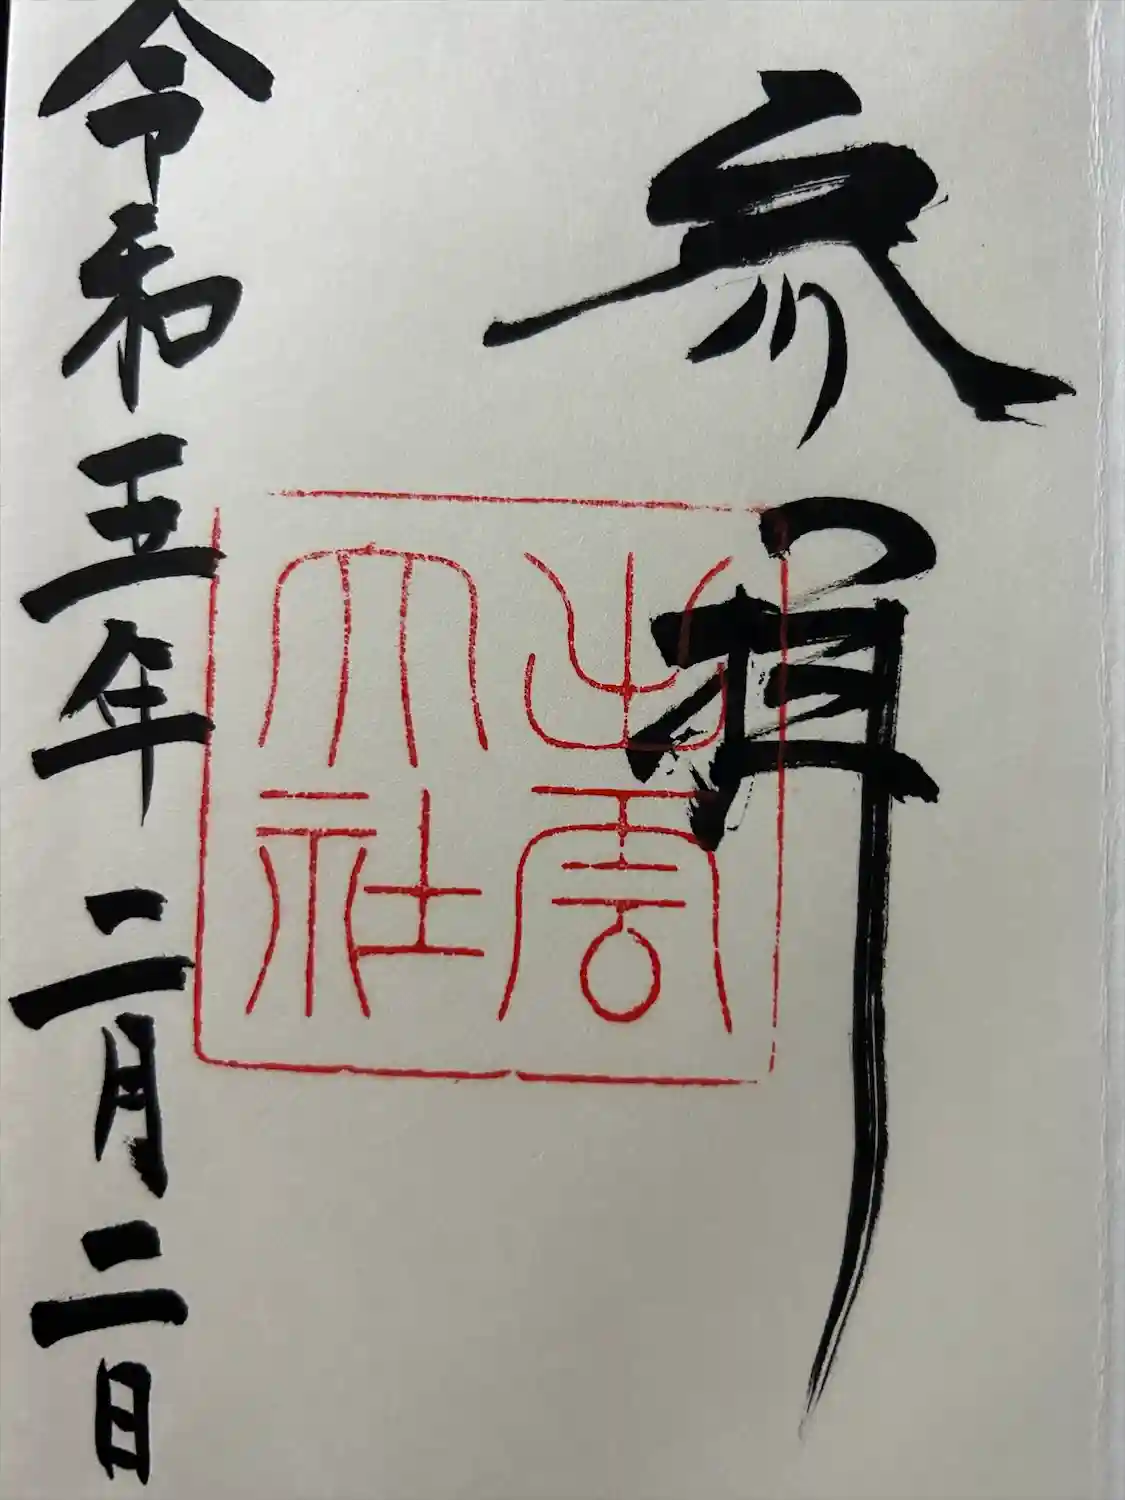 参拝
出雲大社
令和五年二月二日